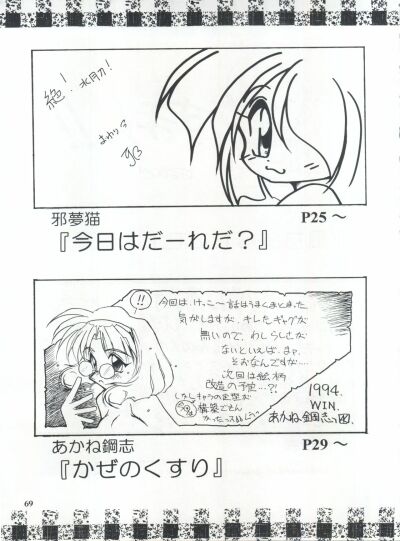 絶!
水月刀!
おわり
邪夢猫
P25～
『今日はだーれだ?』
!!
今回は、けっこ～話はうまくまとまった
気がしますが、キレたギャグが
無いので、わしらしさが
ないといえば、まァ、
そおなんですが…
次回は絵柄
改造の予定…?!
しかしキャラの定型が
構築できん
1994.
WIN.
あかね鋼志
あかね鋼志
P29～
『かぜのくすり』
69